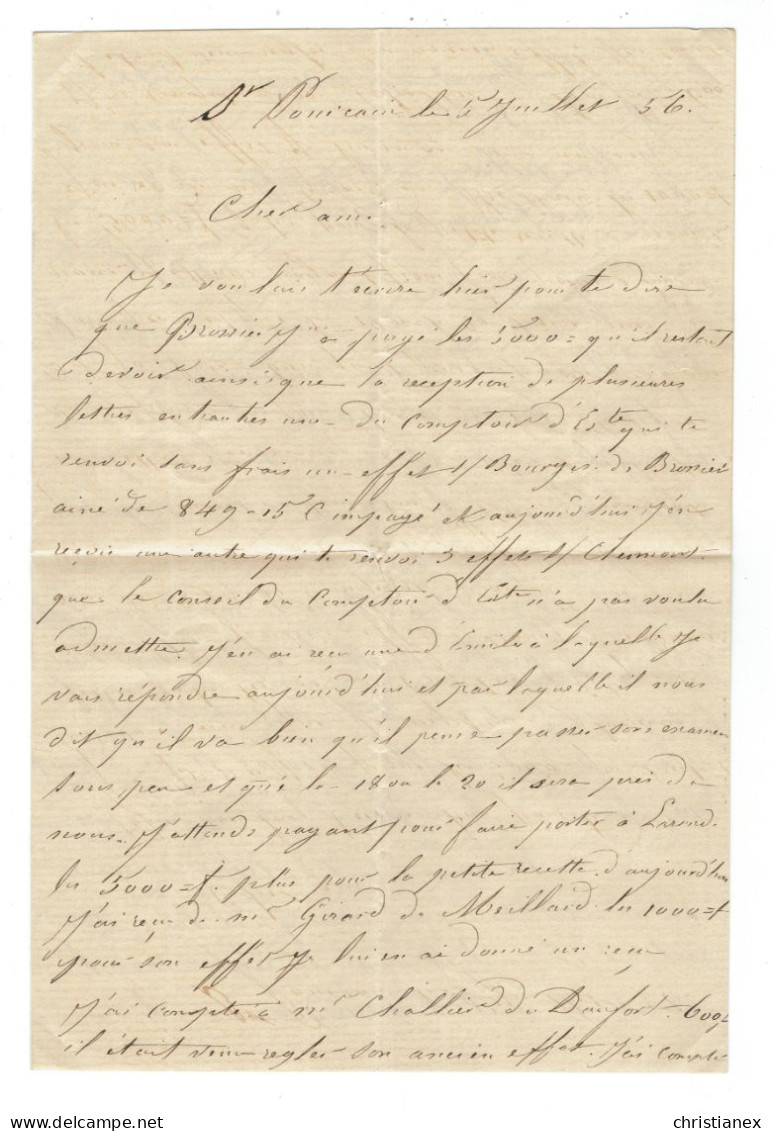 St Pourcain le 5 Juillet 56.
Cher ami
Je voulais t'ecrire hier pour te dire
que Brossier m'a payé les 5000 = qu'il restait
devoir ainsi que la reception de plusieures
lettres entrautres une du Comptoir d'Escte qui te
renvoi sans frais un effet s/ Bourges de Brossier
ainé de 849-15 C impayé et aujourd'hui j'en
reçois une autre qui te renvoi 3 effets s/ Clermont
que le Conseil du Comptoir d'Escte n'a pas voulu
admettre. J'en ai reçu une d'Emile à laquelle je
vais répondre aujourd'hui et par laquelle il nous
dit qu'il va bien qu'il pense passer son examen
sous peu et que le 18 ou le 20 il sera près de
nous. J'attends payant pour faire porter à
les 5000 = f. plus pour la petite recette d'aujourd'hui
J'ai reçu de mr Girard de Meillard les 1000 = f
pour son effet je lui en ai donné un reçu
J'ai compté à mr Challier du Daufort 600f
il était venu regler son ancien effet. J'ai compté
christianex